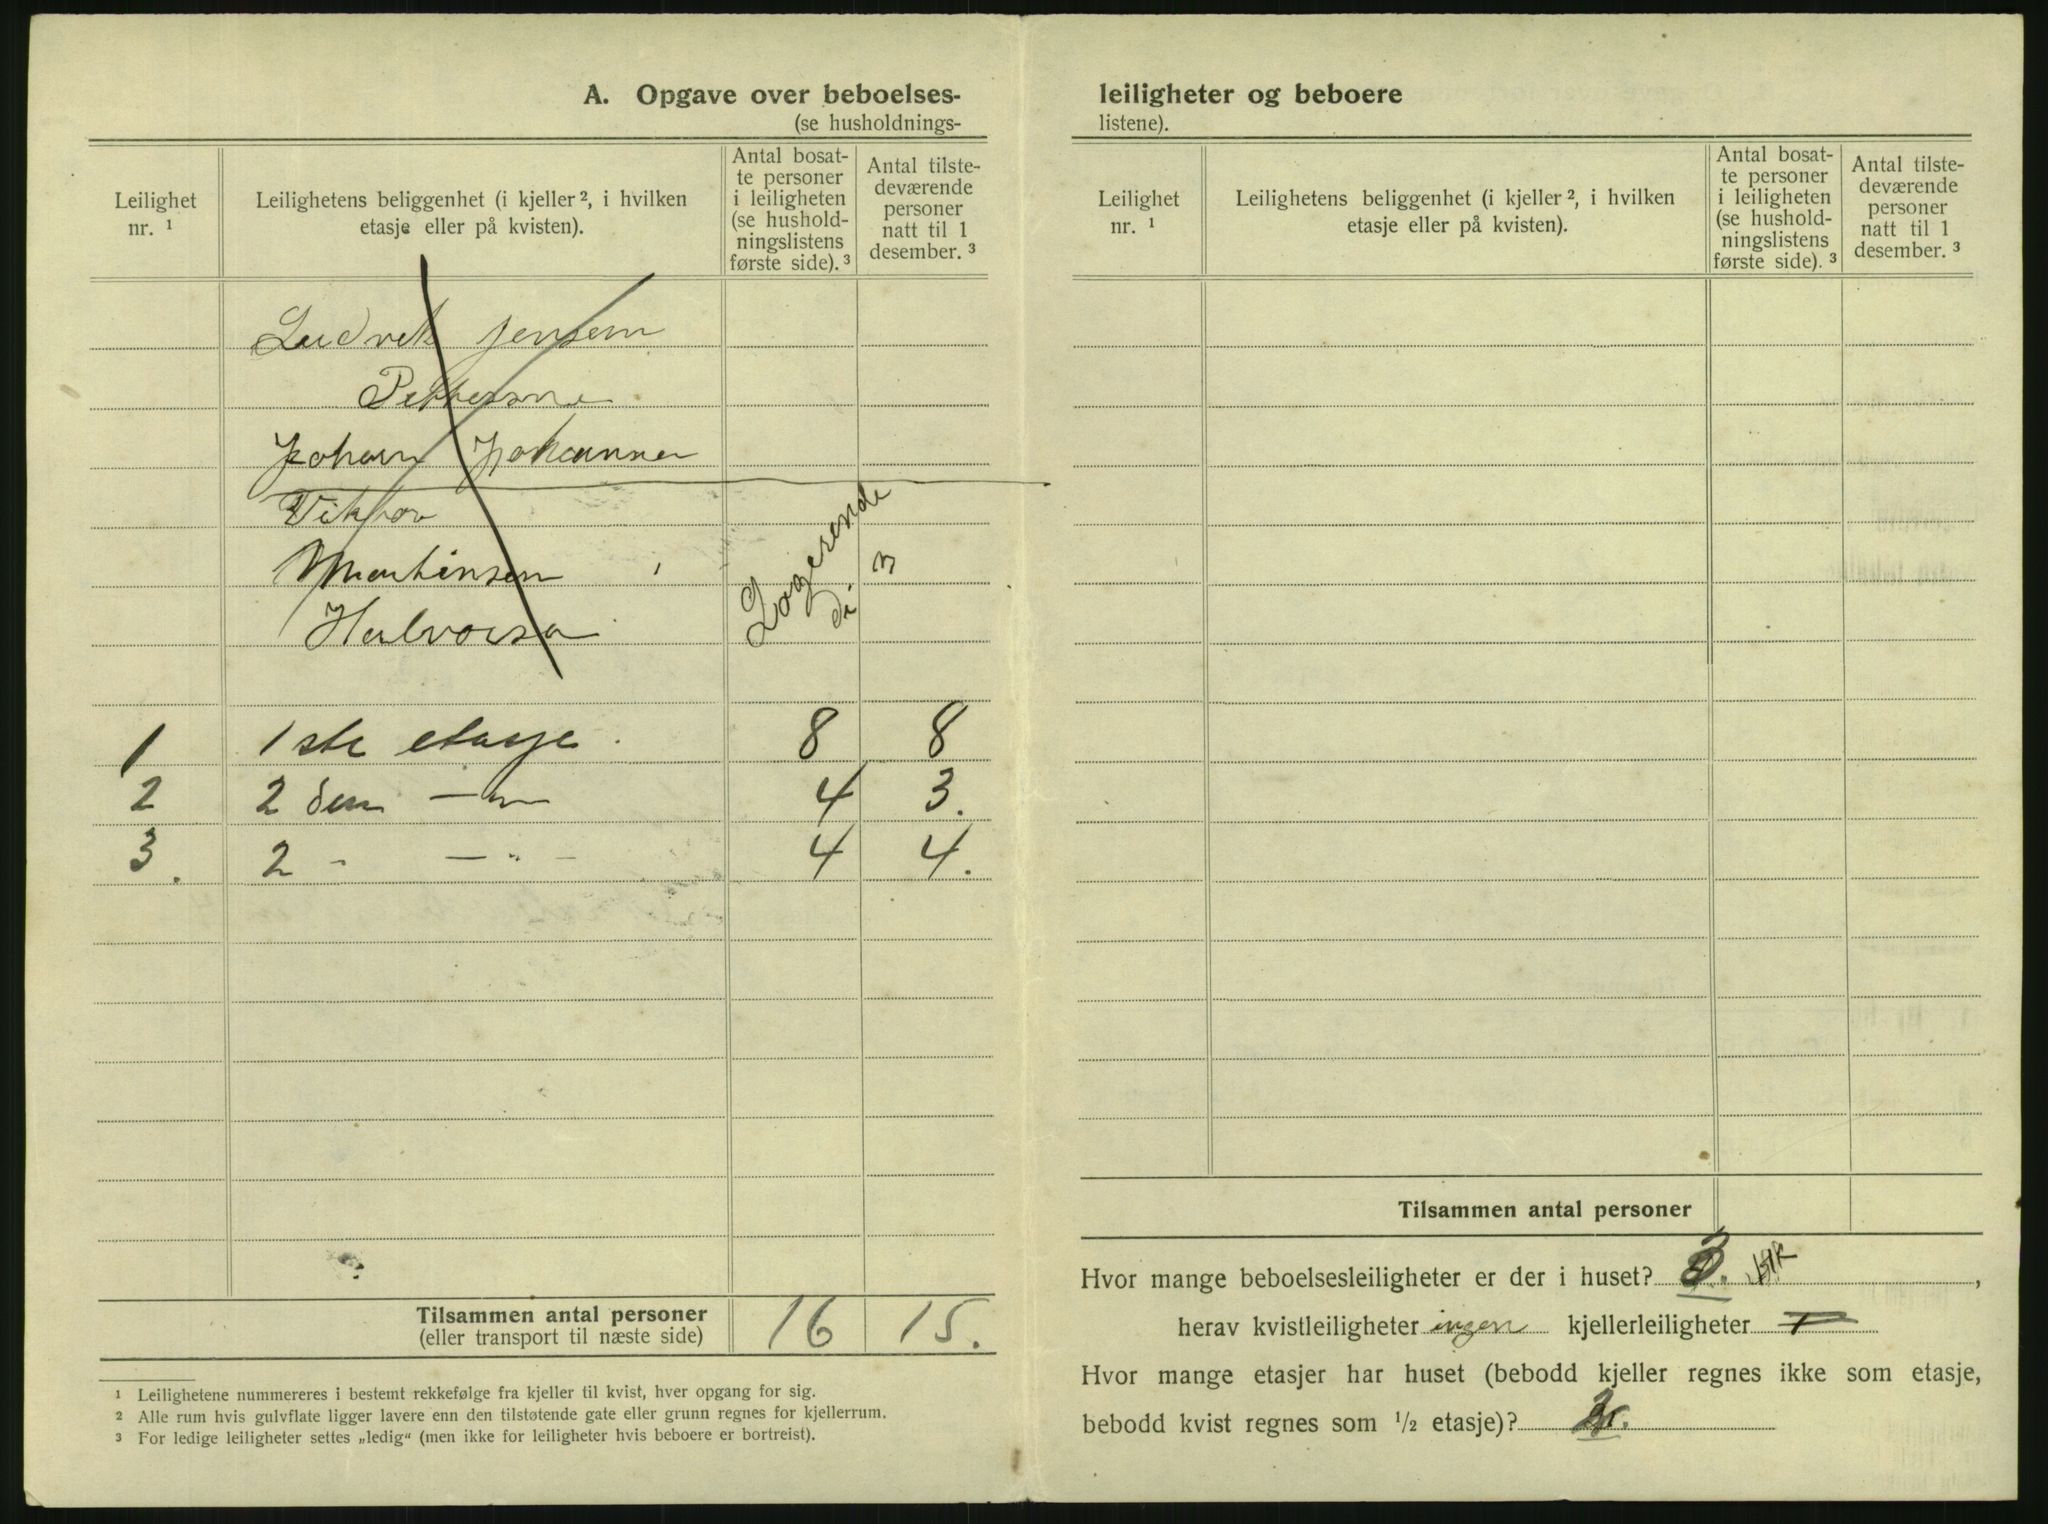 A. Opgave over beboelses-
(se husholdnings-
Leilighet
nr. ¹
Leilighetens beliggenhet (i kjeller ², i hvilken
etasje eller på kvisten).
Antal bosat-
te personer
i leiligheten
(se hushold-
ningslistens
første side). ³
Antal tilste-
deværende
personer
natt til 1
desember. ³
Ludvik Jensen
Johan Johannsen
Viktor
Martinsen
Halvorsen
Logerende
1 1ste etasje. 8 8
2 2den — " — 4 3.
3. 2 - — " - 4 4.
Tilsammen antal personer 16 15.
(eller transport til næste side)
¹ Leilighetene nummereres i bestemt rekkefølge fra kjeller til kvist, hver opgang for sig.
² Alle rum hvis gulvflate ligger lavere enn den tilstøtende gate eller grunn regnes for kjellerrum.
³ For ledige leiligheter settes „ledig“ (men ikke for leiligheter hvis beboere er bortreist).
leiligheter og beboere
listene).
Leilighet
nr. ¹
Leilighetens beliggenhet (i kjeller ², i hvilken
etasje eller på kvisten).
Antal bosat-
te personer
i leiligheten
(se hushold-
ningslistens
første side). ³
Antal tilste-
deværende
personer
natt til 1
desember. ³
Tilsammen antal personer
Hvor mange beboelsesleiligheter er der i huset? 3. ,
herav kvistleiligheter ingen kjellerleiligheter
Hvor mange etasjer har huset (bebodd kjeller regnes ikke som etasje,
bebodd kvist regnes som ½ etasje)? 2.